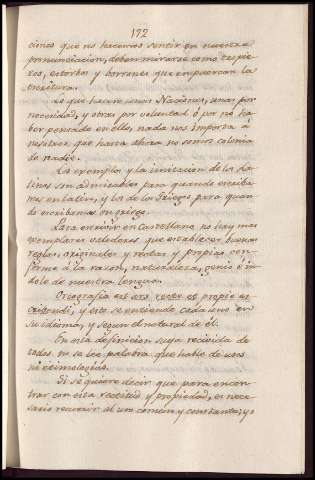 172
ciones que no hacemos sentir en nuestra
pronunciacion, deben mirarse como tropie-
zos, estorbos y borrones que empuercan la
escritura.
Lo que hacen unas Naciones, unas por
necesidad, y otras por voluntad ó por no ha-
ber pensado en ello, nada nos importa á
nosotros que hasta ahora no somos colonia
de nadie.
Los exemplos y la imitacion de los La-
tinos son admirables para quando escriba-
mos en latin, y los de los Griegos para quan-
do escribamos en griego.
Para escribir en Castellano no hay mas
exemplares valederos, que establecer buenas
reglas, originales y rectas y propias con-
forme á la razon, naturaleza, genio é in-
dole de nuestra lengua.
Ortografia est ars recte et propie
scribendi, y esto se entiende cada uno en
su idioma, y segun el natural de él.
En esta definicion suya recibida de
todos no se lee palabra que hable de usos
ni etimologias.
Si se quiere decir que para encon-
trar con esta rectitud y propiedad, es nece-
sario recurrir al uso comun y constante, yo